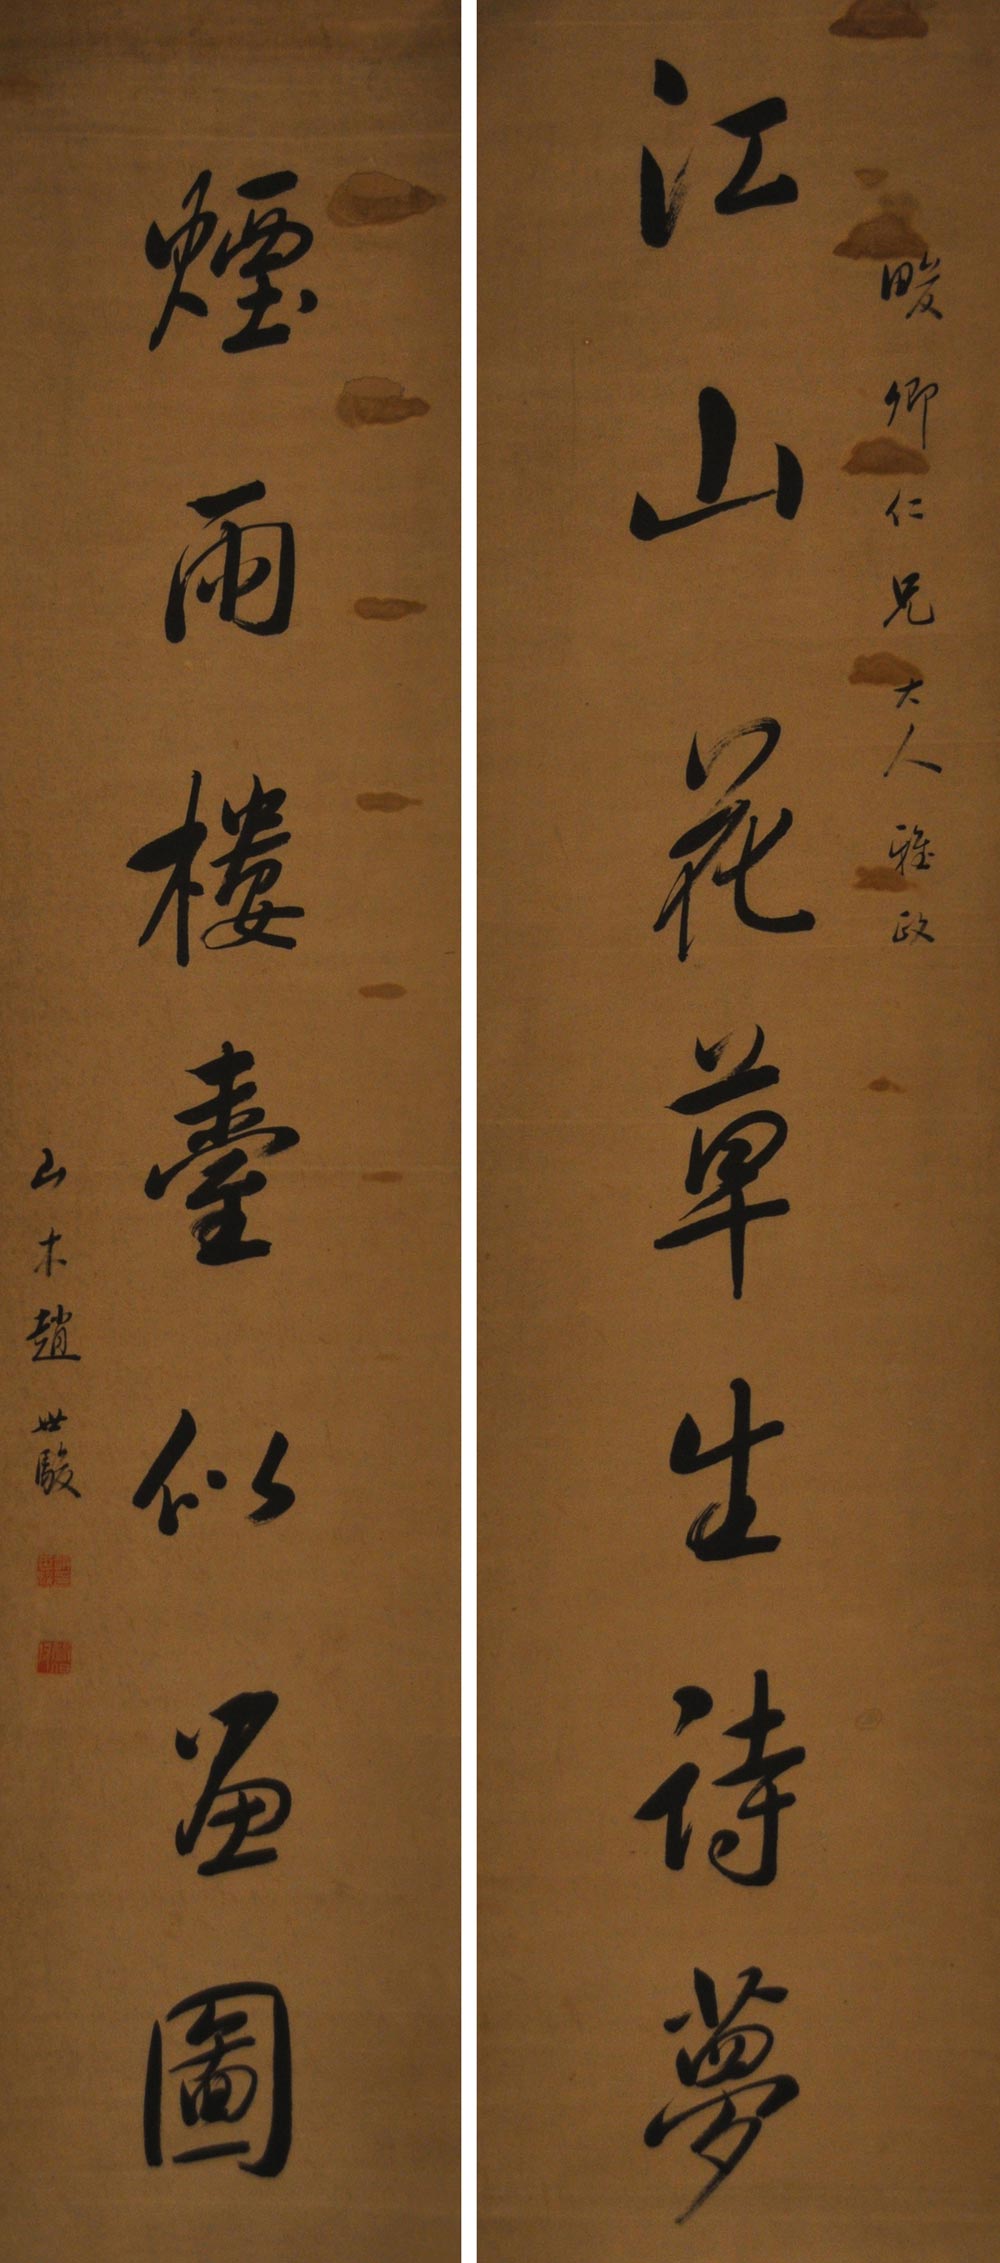 畯卿仁兄大人雅政
江山花草生詩夢
煙雨樓臺似畫圖
山木趙世駿